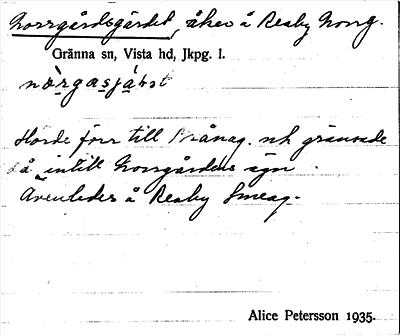 Norrgårdsgärdet, åker å Reaby Norrg.
Gränna sn, Vista hd, Jkpg. l.
Hörde förr till nk gränsade
då intill Norrgårdens ägn.
Avenledes å Reaby Smeag.
Alice Petersson 1935.